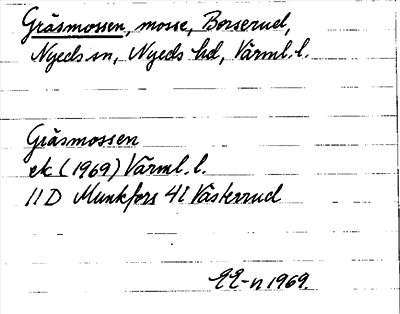 Gräsmossen, mosse, Borserud,
Nyeds sn, Nyeds hd, Värml. l.
Gräsmossen
ek (1969) Värml. l.
11D Munkfors 4i Västerrud
1969.